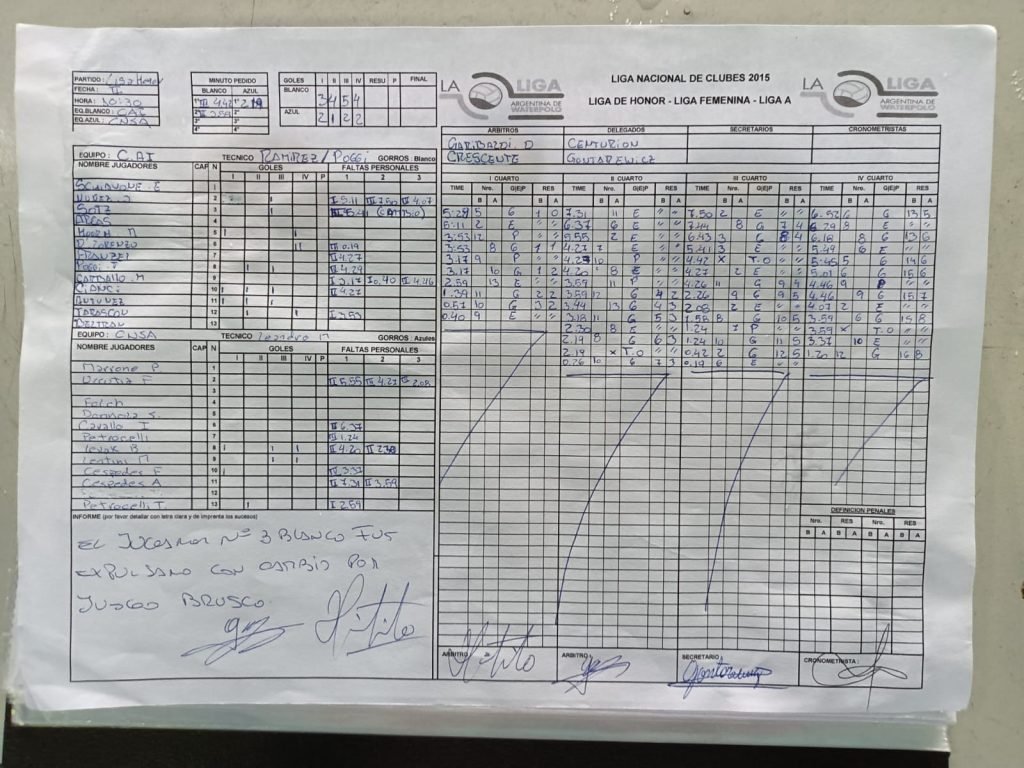 PARTIDO:
FECHA: II
HORA: 10:30
EQ.BLANCO: CAI
EQ.AZUL: CNSA
MINUTO PEDIDO
BLANCO AZUL
1° III 4.42 1° 2.19
2° 3.59 2°
3° 3°
4° 4°
GOLES I II III IV RESU P FINAL
BLANCO 3 4 5 4
AZUL 2 1 2 2
LA LIGA
ARGENTINA DE
WATERPOLO
LIGA NACIONAL DE CLUBES 2015
LIGA DE HONOR - LIGA FEMENINA - LIGA A
LA LIGA
ARGENTINA DE
WATERPOLO
ARBITROS DELEGADOS SECRETARIOS CRONOMETRISTAS
GARIBALDI.D CENTURION
CRESCENTE GONTAREWICZ
EQUIPO: C.AI TECNICO RAMIREZ/POGGI GORROS: Blanco
NOMBRE JUGADORES CAP N GOLES FALTAS PERSONALES
I II III IV P 1 2 3
SCHIAVONE.E 1
2 I 5.11 III 7.50 IV 4.07
3
4
5
D. LORENZO 6 III 0.19
FRANZEI 7 II 4.27
POGGI.F 8 II 4.29
CARBALLO.M 9 I 3.17 I 0.40 IV 4.46
10 II 4.27
ANTUNEZ 11
TARASCON 12 I 3.53
BELTRAN 13
EQUIPO: CNSA TECNICO Leandro M GORROS: Azules
NOMBRE JUGADORES CAP N GOLES FALTAS PERSONALES
I II III IV P 1 2 3
Marrone P. 1
Urrutia F 2 II 5.55 III 4.27 III 2.08
3
Folch 4
5
Cavallo I 6 II 6.37
Petrocelli 7 III 1.24
8 II 4.20 II 2.30
Lentini M 9
Cespedes F 10 IV 3.37
Cespedes A 11 II 7.31 II 3.59
12
Petrocelli T. 13 I 2.59
INFORME (por favor detallar con letra clara y de imprenta los sucesos)
EL JUGADOR Nº 3 BLANCO FUE
EXPULSADO CON CAMBIO POR
JUEGO BRUSCO.
I CUARTO II CUARTO III CUARTO IV CUARTO
TIME Nro. G|E|P RES TIME Nro. G|E|P RES TIME Nro. G|E|P RES TIME Nro. G|E|P RES
B A B A B A B A B A B A B A B A
5:28 5 G 1 0 7.31 11 E " " 7.50 2 E " " 6.52 6 G 13 5
5:11 2 E " " 6.37 6 E " " 7.44 8 G 7 4 6.29 8 E " "
3:53 12 P " " 5.55 2 E " " 6.43 3 G 8 4 6.18 8 G 13 6
3.53 8 G 1 1 4.27 7 E " " 5.41 3 E " " 5.49 6 E " "
3.17 9 P " " 4.27 10 P " " 4.42 X T.O " " 5:45 5 G 14 6
3.17 10 G 1 2 4.20 8 E " " 4.27 2 E " " 5.01 6 G 15 6
2.59 13 E " " 3.59 11 P " " 4.26 11 G 9 4 4.46 9 P " "
1.39 11 G 2 2 3.59 12 G 4 2 2.26 9 G 9 5 4.46 9 G 15 7
0.57 10 G 3 2 3.44 13 G 4 3 2.08 2 E " " 4.07 2 E " "
0.40 9 E " " 3.18 11 G 5 3 1.55 8 G 10 5 3.59 6 G 15 8
2.30 8 E " " 1.24 7 P " " 3.59 X T.O " "
2.19 8 G 6 3 1.24 10 G 11 5 3.37 10 E " "
2.19 X T.O " " 0.42 2 G 12 5 1.20 12 G 16 8
0.26 10 G 7 3 0.19 6 E " "
DEFINICION PENALES
Nro. RES Nro. RES
B A B A B A B A
ARBITRO: ARBITRO: SECRETARIO: CRONOMETRISTA: